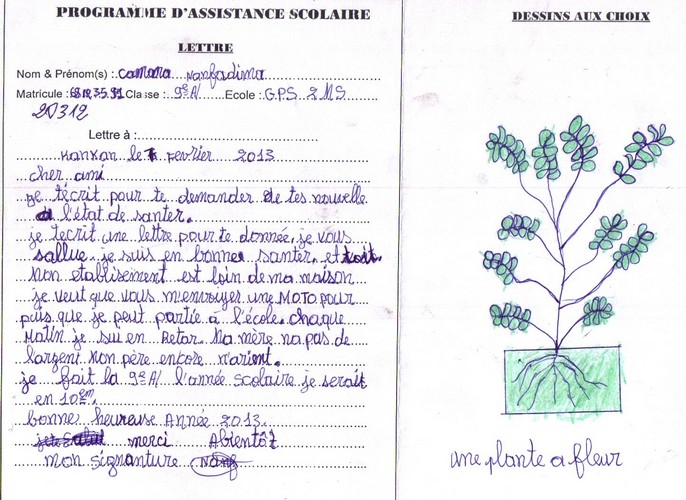 PROGRAMME D'ASSISTANCE SCOLAIRE
LETTRE
Nom & Prénom(s) : Camara Nanfadima
Matricule : Classe : 9è A/ Ecole : G.P.S. 2 M.S.
20312
Lettre à :
Kankan le Fevrier 2013
cher ami
je t'écrit pour te demander de tes nouvelle
l'état de santer.
je tecrit une lettre pour te donnée, je vous
sallue. je suis en bonne santer. et toit.
Mon etablisement est loin de ma maison
je veut que vous m'envoyer une MOTO pour
puis que je peut partie à l'école. chaque
Matin je sui en Retar. Ma mère na pas de
largent Mon père encore n'arient.
je fait la 9è A/ l'année scolaire je serait
en 10em.
bonne heureuse Année 2013.
merci Abientôt
mon signanture Nanf
DESSINS AUX CHOIX
une plante a fleur